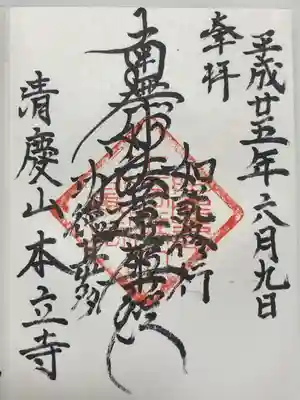 平成廿五年六月九日
奉拝
如説修行
南無妙法蓮華経
功徳甚多
清慶山本立寺